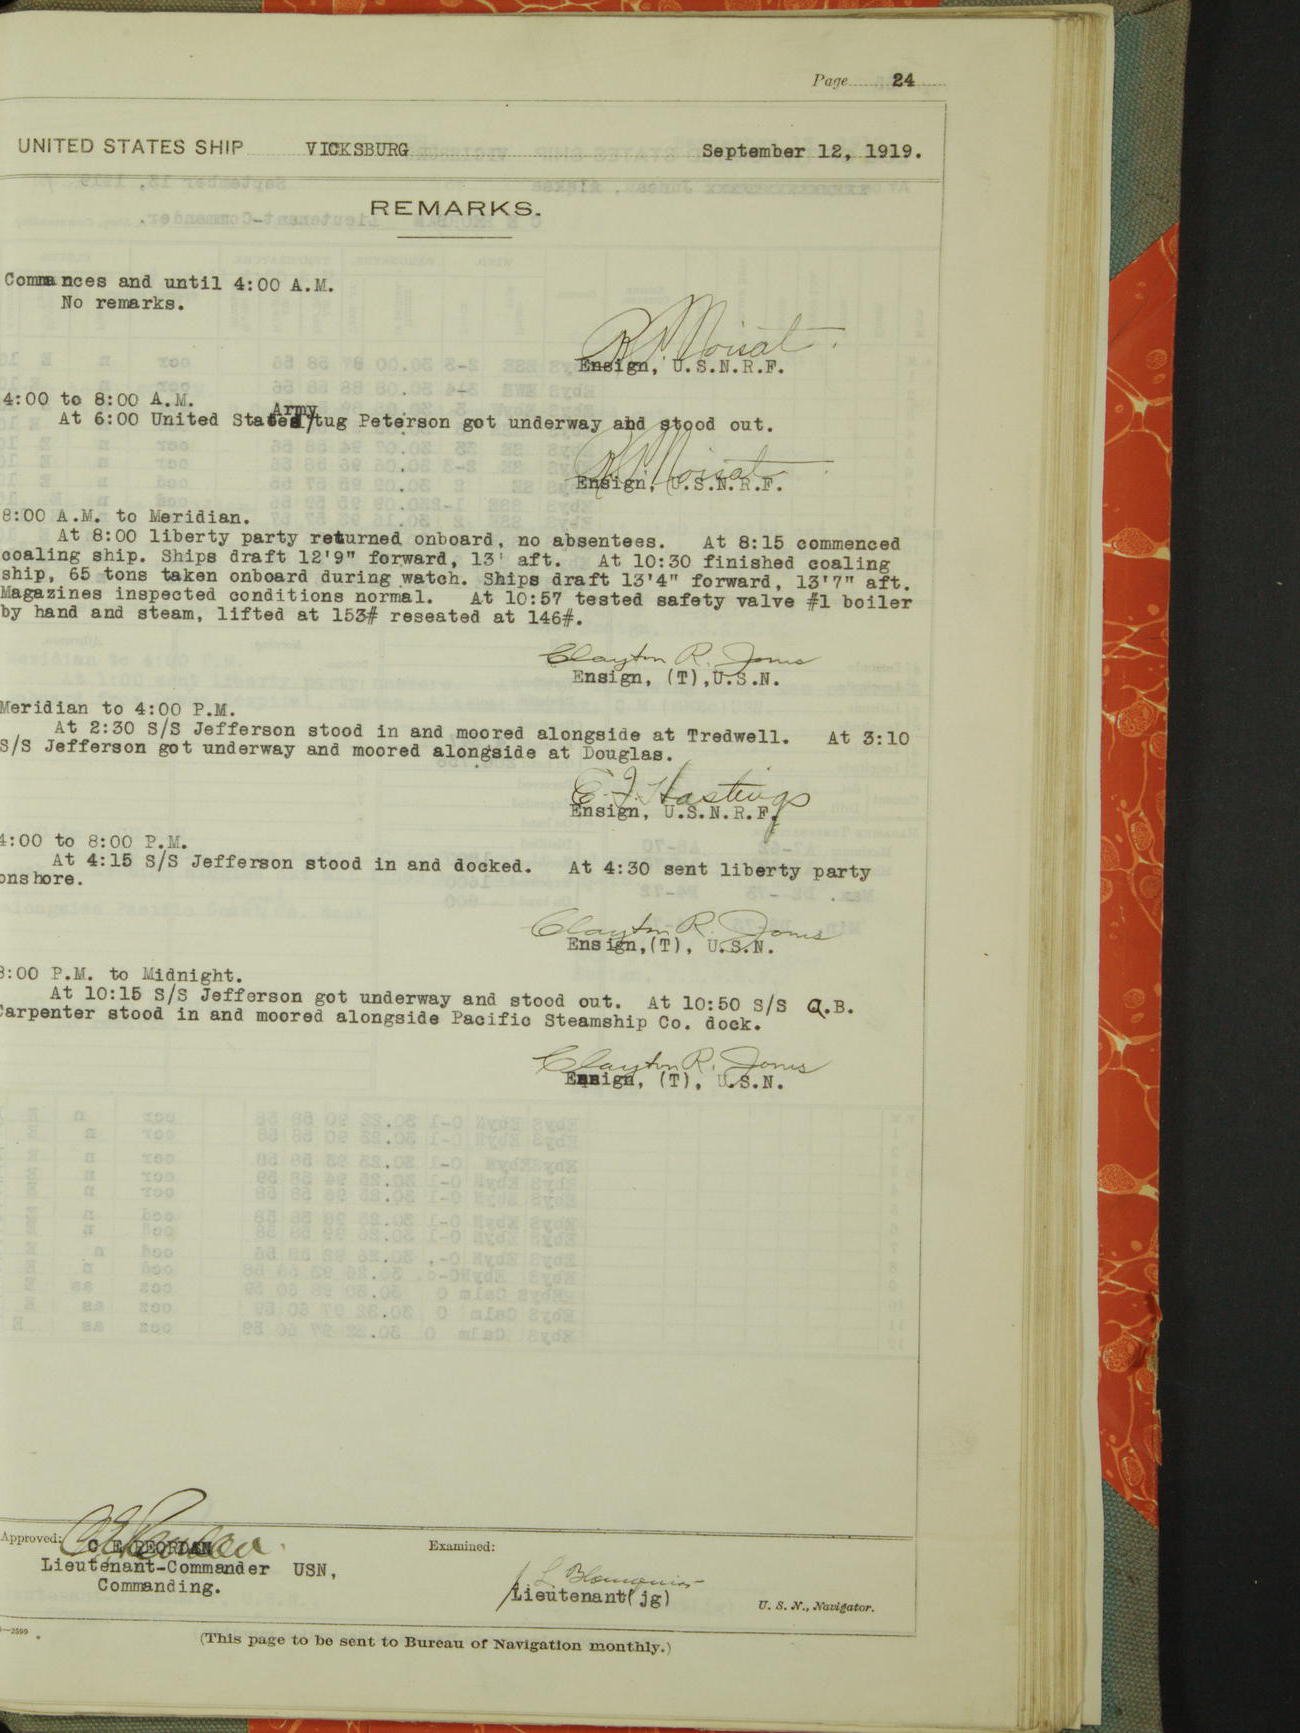 Page 24
UNITED STATES SHIP VICKSBURG September 12, 1919.
REMARKS.
Commances and until 4:00 A.M.
No remarks.
Ensign, U.S.N.R.F.
4:00 to 8:00 A.M.
Army
At 6:00 United States/tug Peterson got underway and stood out.
Ensign, U.S.N.R.F.
8:00 A.M. to Meridian.
At 8:00 liberty party returned onboard, no absentees. At 8:15 commenced
coaling ship. Ships draft 12'9" forward, 13' aft. At 10:30 finished coaling
ship, 65 tons taken onboard during watch. Ships draft 13'4" forward, 13'7" aft.
Magazines inspected conditions normal. At 10:57 tested safety valve #1 boiler
by hand and steam, lifted at 153# reseated at 146#.
Clayton R. Jones
Ensign, (T),U.S.N.
Meridian to 4:00 P.M.
At 2:30 S/S Jefferson stood in and moored alongside at Tredwell. At 3:10
S/S Jefferson got underway and moored alongside at Douglas.
E. J. Hastings
Ensign, U.S.N.R.F.
4:00 to 8:00 P.M.
At 4:15 S/S Jefferson stood in and docked. At 4:30 sent liberty party
onshore.
Clayton R. Jones
Ensign,(T), U.S.N.
8:00 P.M. to Midnight.
At 10:15 S/S Jefferson got underway and stood out. At 10:50 S/S A.B.
Carpenter stood in and moored alongside Pacific Steamship Co. dock.
Clayton R. Jones
Ensign, (T), U.S.N.
Approved:
C E REORDAN
Lieutenant-Commander USN,
Commanding.
Examined:
Lieutenant(jg) U. S. N., Navigator.
—2599
(This page to be sent to Bureau of Navigation monthly.)